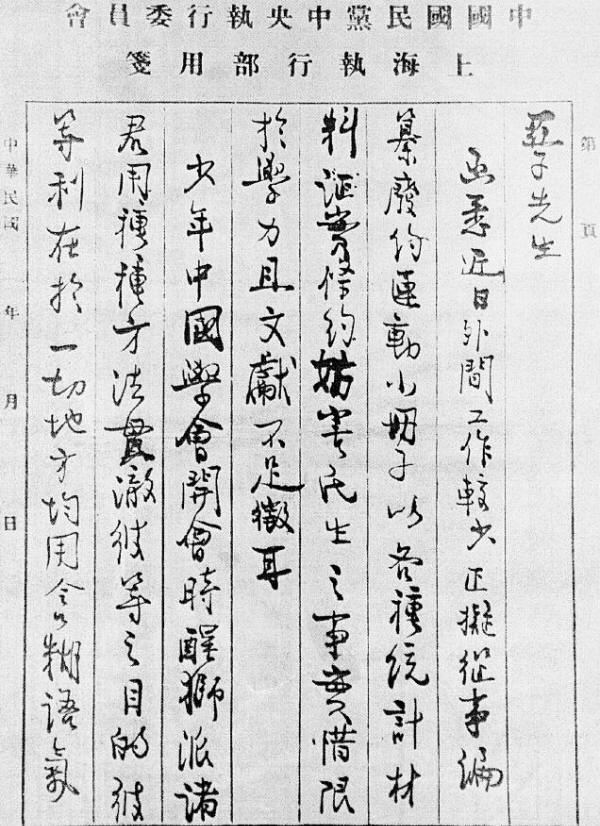 中國國民黨中央執行委員會
上海執行部用箋
第 頁
亞子先生
函悉近日外間工作較少正擬從事編
纂廢約運動小册子以各種統計材
料證實條約妨害民生之事實惜限
於學力且文獻不足徵耳
少年中國學會開會時醒獅派諸
君用種種方法貫澈彼等之目的彼
等利在於一切地方均用含糊語氣
中華民國 年 月 日